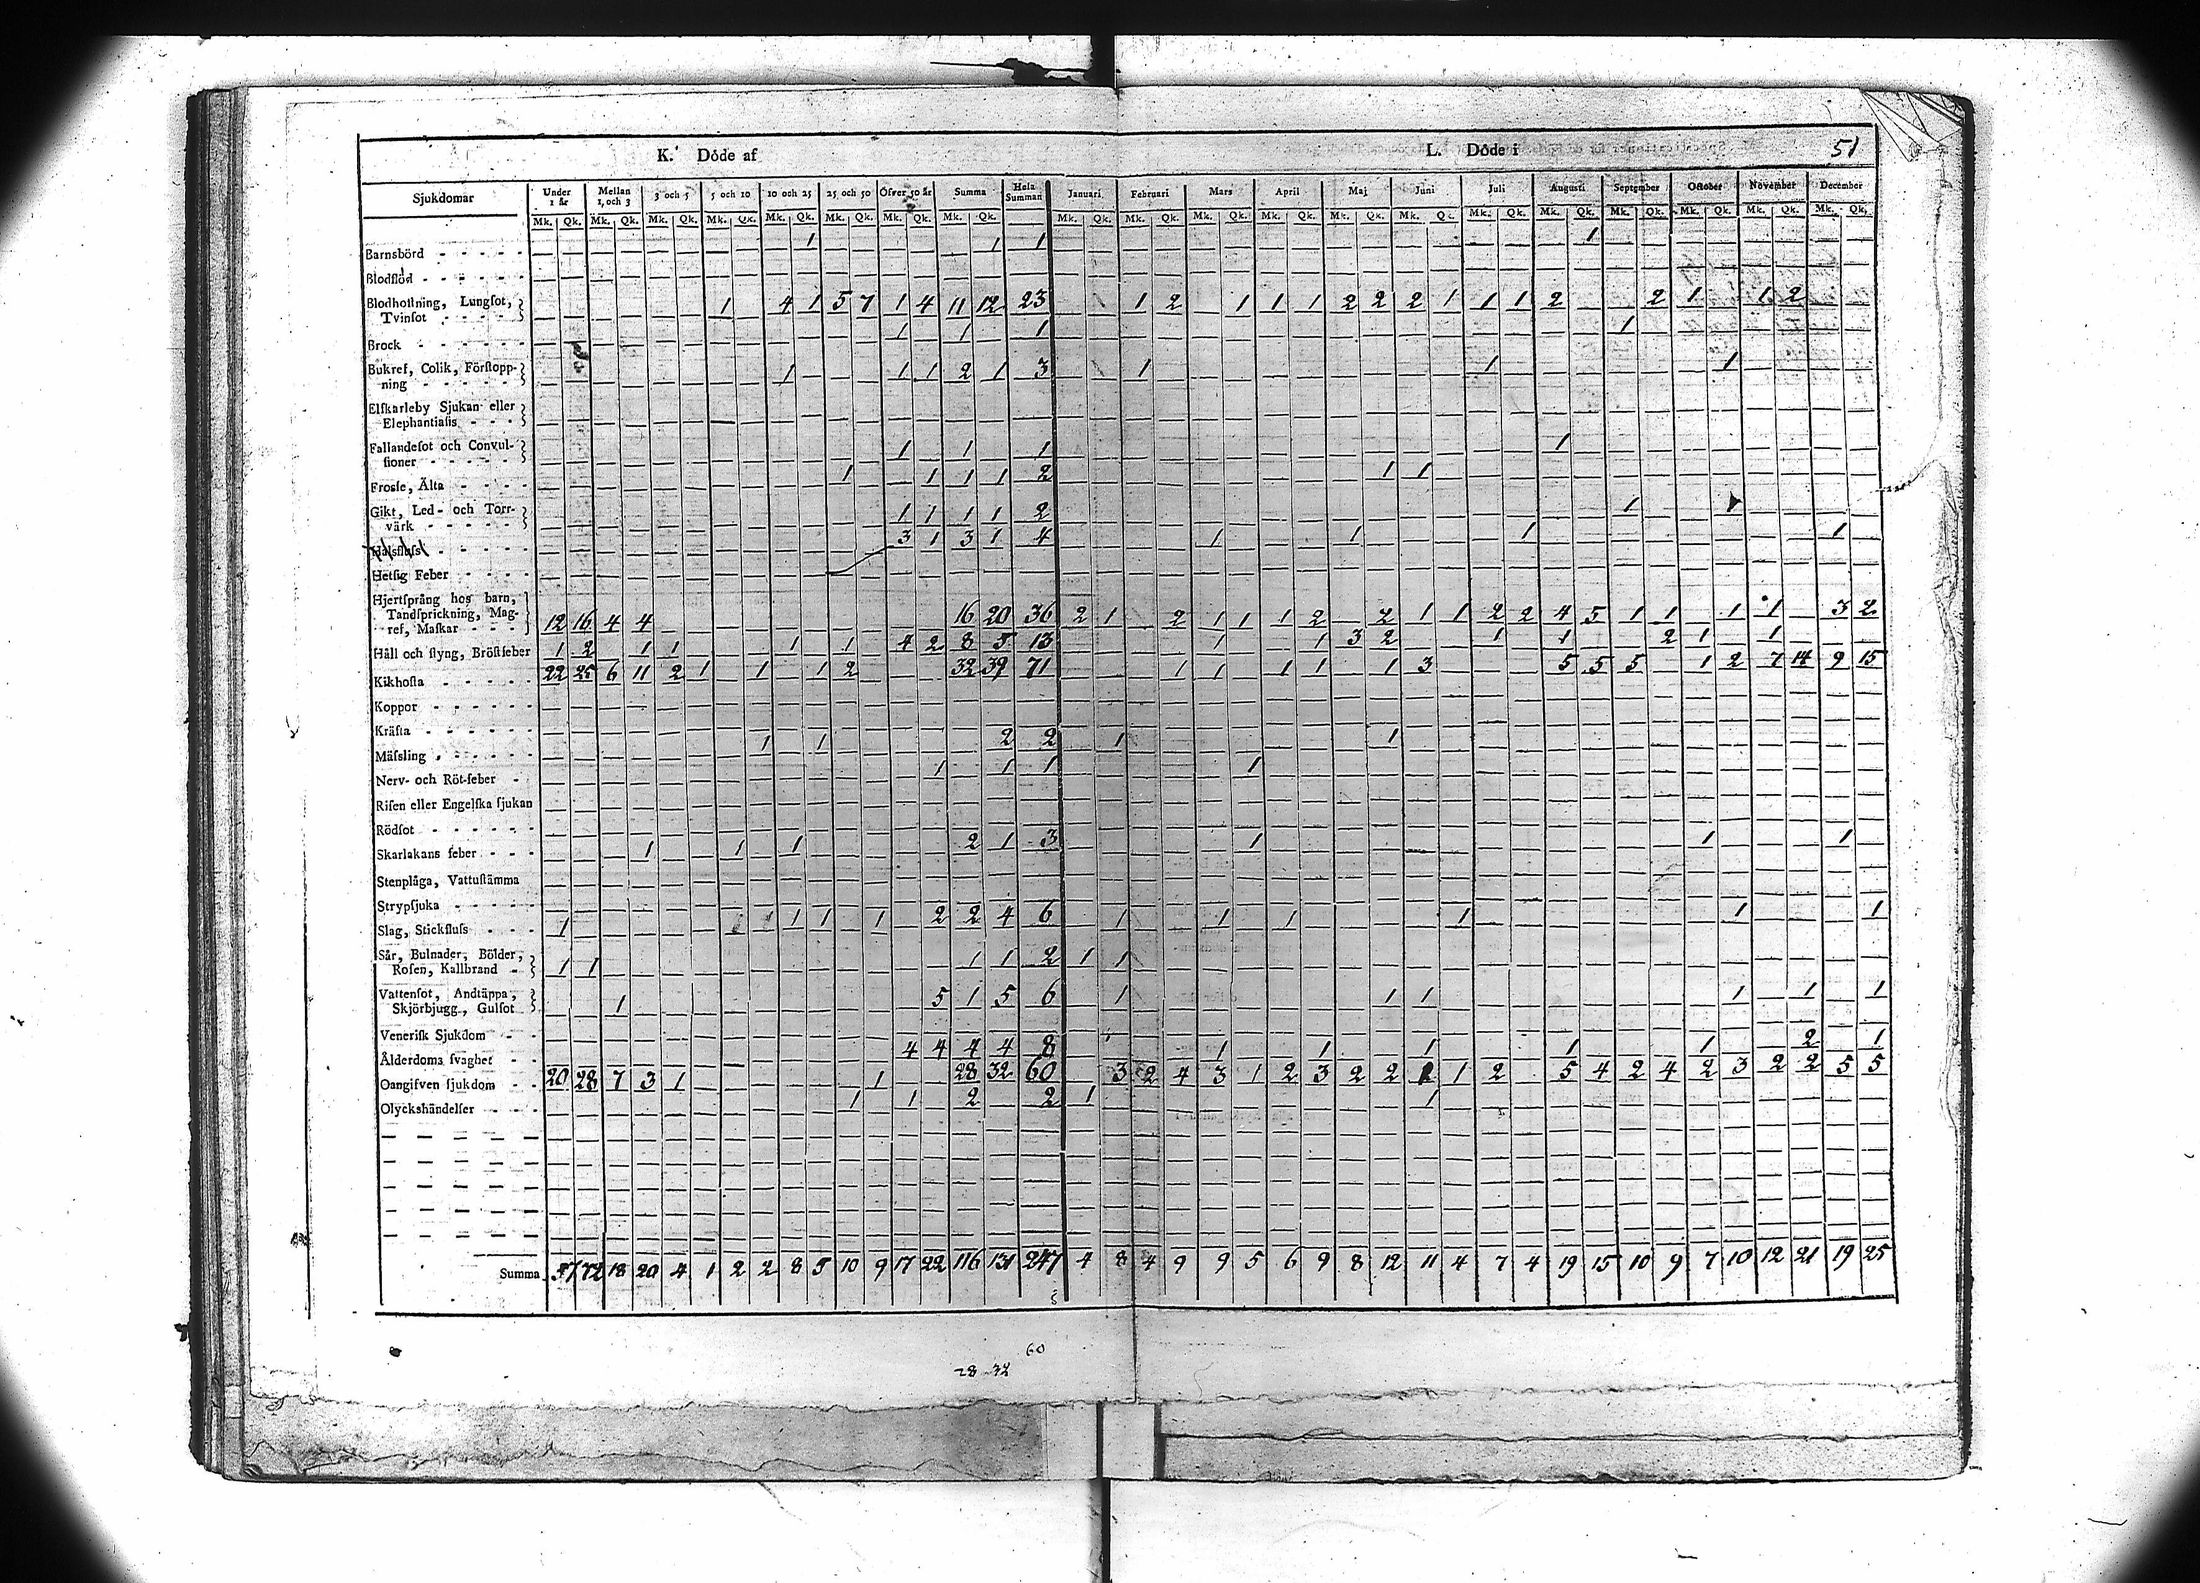 K. Döde af L. Döde i 51
Sjukdomar Under 1 år Mellan 1, och 3 3 och 5 5 och 10 10 och 25 25 och 50 Öfver 50 år Summa Hela Summan Januari Februari Mars April Maj Juni Juli Augusti September October November December
Mk. Qk. Mk. Qk. Mk. Qk. Mk. Qk. Mk. Qk. Mk. Qk. Mk. Qk. Mk. Qk. Mk. Qk. Mk. Qk. Mk. Qk. Mk. Qk. Mk. Qk. Mk. Qk. Mk. Qk. Mk. Qk. Mk. Qk. Mk. Qk. Mk. Qk. Mk. Qk.
Barnsbörd 1 1 1 1
Blodflöd
Blodhostning, Lungsot,
Tvinsot 1 4 1 5 7 1 4 11 12 23 1 2 1 1 1 2 2 2 1 1 1 2 2 1 1 2
Brock 1 1 1 1
Bukref, Colik, Förstopp-
ning 1 1 1 2 1 3 1 1 1
Elfkarleby Sjukan eller
Elephantiasis
Fallandesot och Convul-
sioner 1 1 1 1
Frosse, Älta 1 1 1 1 2 1 1
Gikt, Led- och Torr-
värk 1 1 1 1 2 1 1
Halsfluss 3 1 3 1 4 1 1 1 1
Hetsig Feber
Hjertsprång hos barn,
Tandsprickning, Mag-
ref, Maskar 12 16 4 4 16 20 36 2 1 2 1 1 1 2 2 1 1 2 2 4 5 1 1 1 1 3 2
Håll och styng, Bröstfeber 1 2 1 1 1 1 4 2 8 5 13 1 1 3 2 1 1 2 1 1
Kikhosta 22 25 6 11 2 1 1 1 2 32 39 71 1 1 1 1 1 3 5 5 5 1 2 7 14 9 15
Koppor
Kräfta
Mässling 1 1 2 2 1 1
Nerv- och Röt-feber 1 1 1 1
Risen eller Engelska sjukan
Rödsot
Skarlakans feber 1 1 1 2 1 3 1 1 1
Stenplåga, Vattustämma
Strypsjuka
Slag, Stickfluss 1 1 1 1 2 2 4 6 1 1 1 1 1 1
Sår, Bulnader, Bölder,
Rosen, Kallbrand 1 1 1 1 2 1 1
Vattensot, Andtäppa,
Skjörbjugg, Gulsot 1 5 1 5 6 1 1 1 1 1 1
Venerisk Sjukdom
Ålderdoms svaghet 4 4 4 4 8 1 1 1 1 1 2 1
Oangifven sjukdom 20 28 7 3 1 1 28 32 60 3 2 4 3 1 2 3 2 2 1 2 5 4 2 4 2 3 2 2 5 5
Olyckshändelser 1 1 2 2 1 1
Summa 37 72 18 20 4 1 2 2 8 5 10 9 17 22 116 131 247 4 8 4 9 9 5 6 9 8 12 11 4 7 4 19 15 10 9 7 10 12 21 19 25
60
28 32